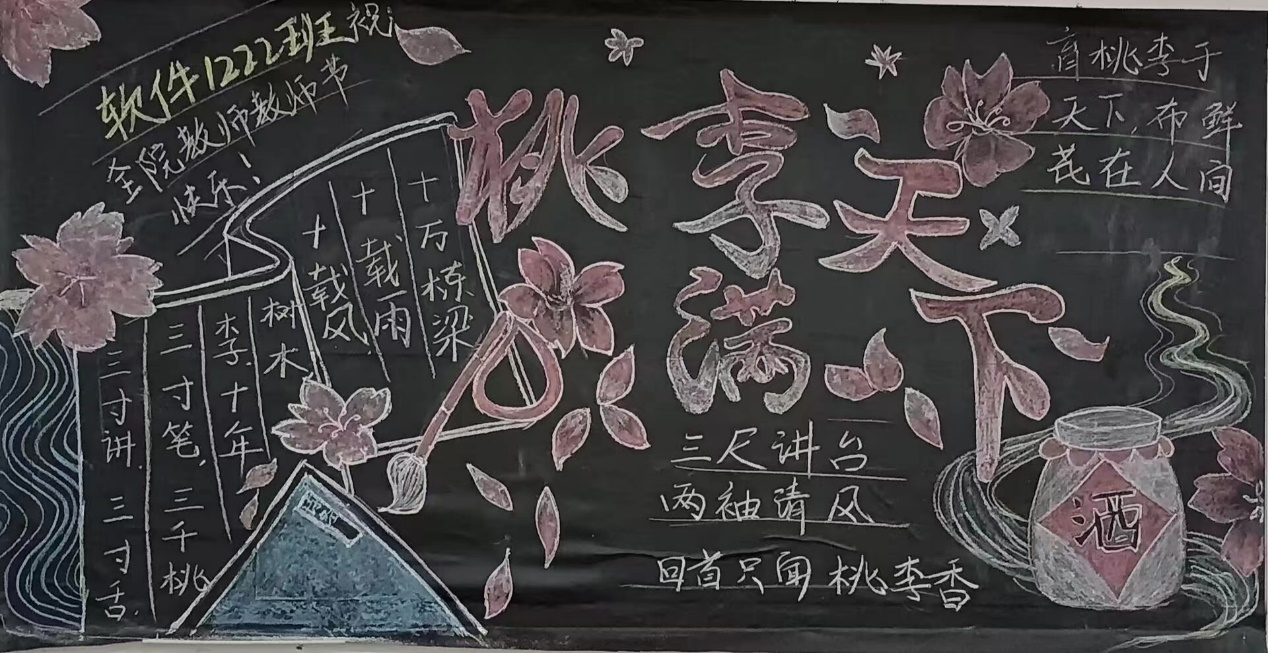 软件1222班祝
全院教师教师节
快乐！
桃李
满
天下
育桃李于
天下,布鲜
花在人间
三寸讲.三寸舌.
三寸笔,三千桃
李.十年
树木
十载风.
十载雨
十万栋梁
三尺讲台
两袖清风
回首只闻桃李香
酒